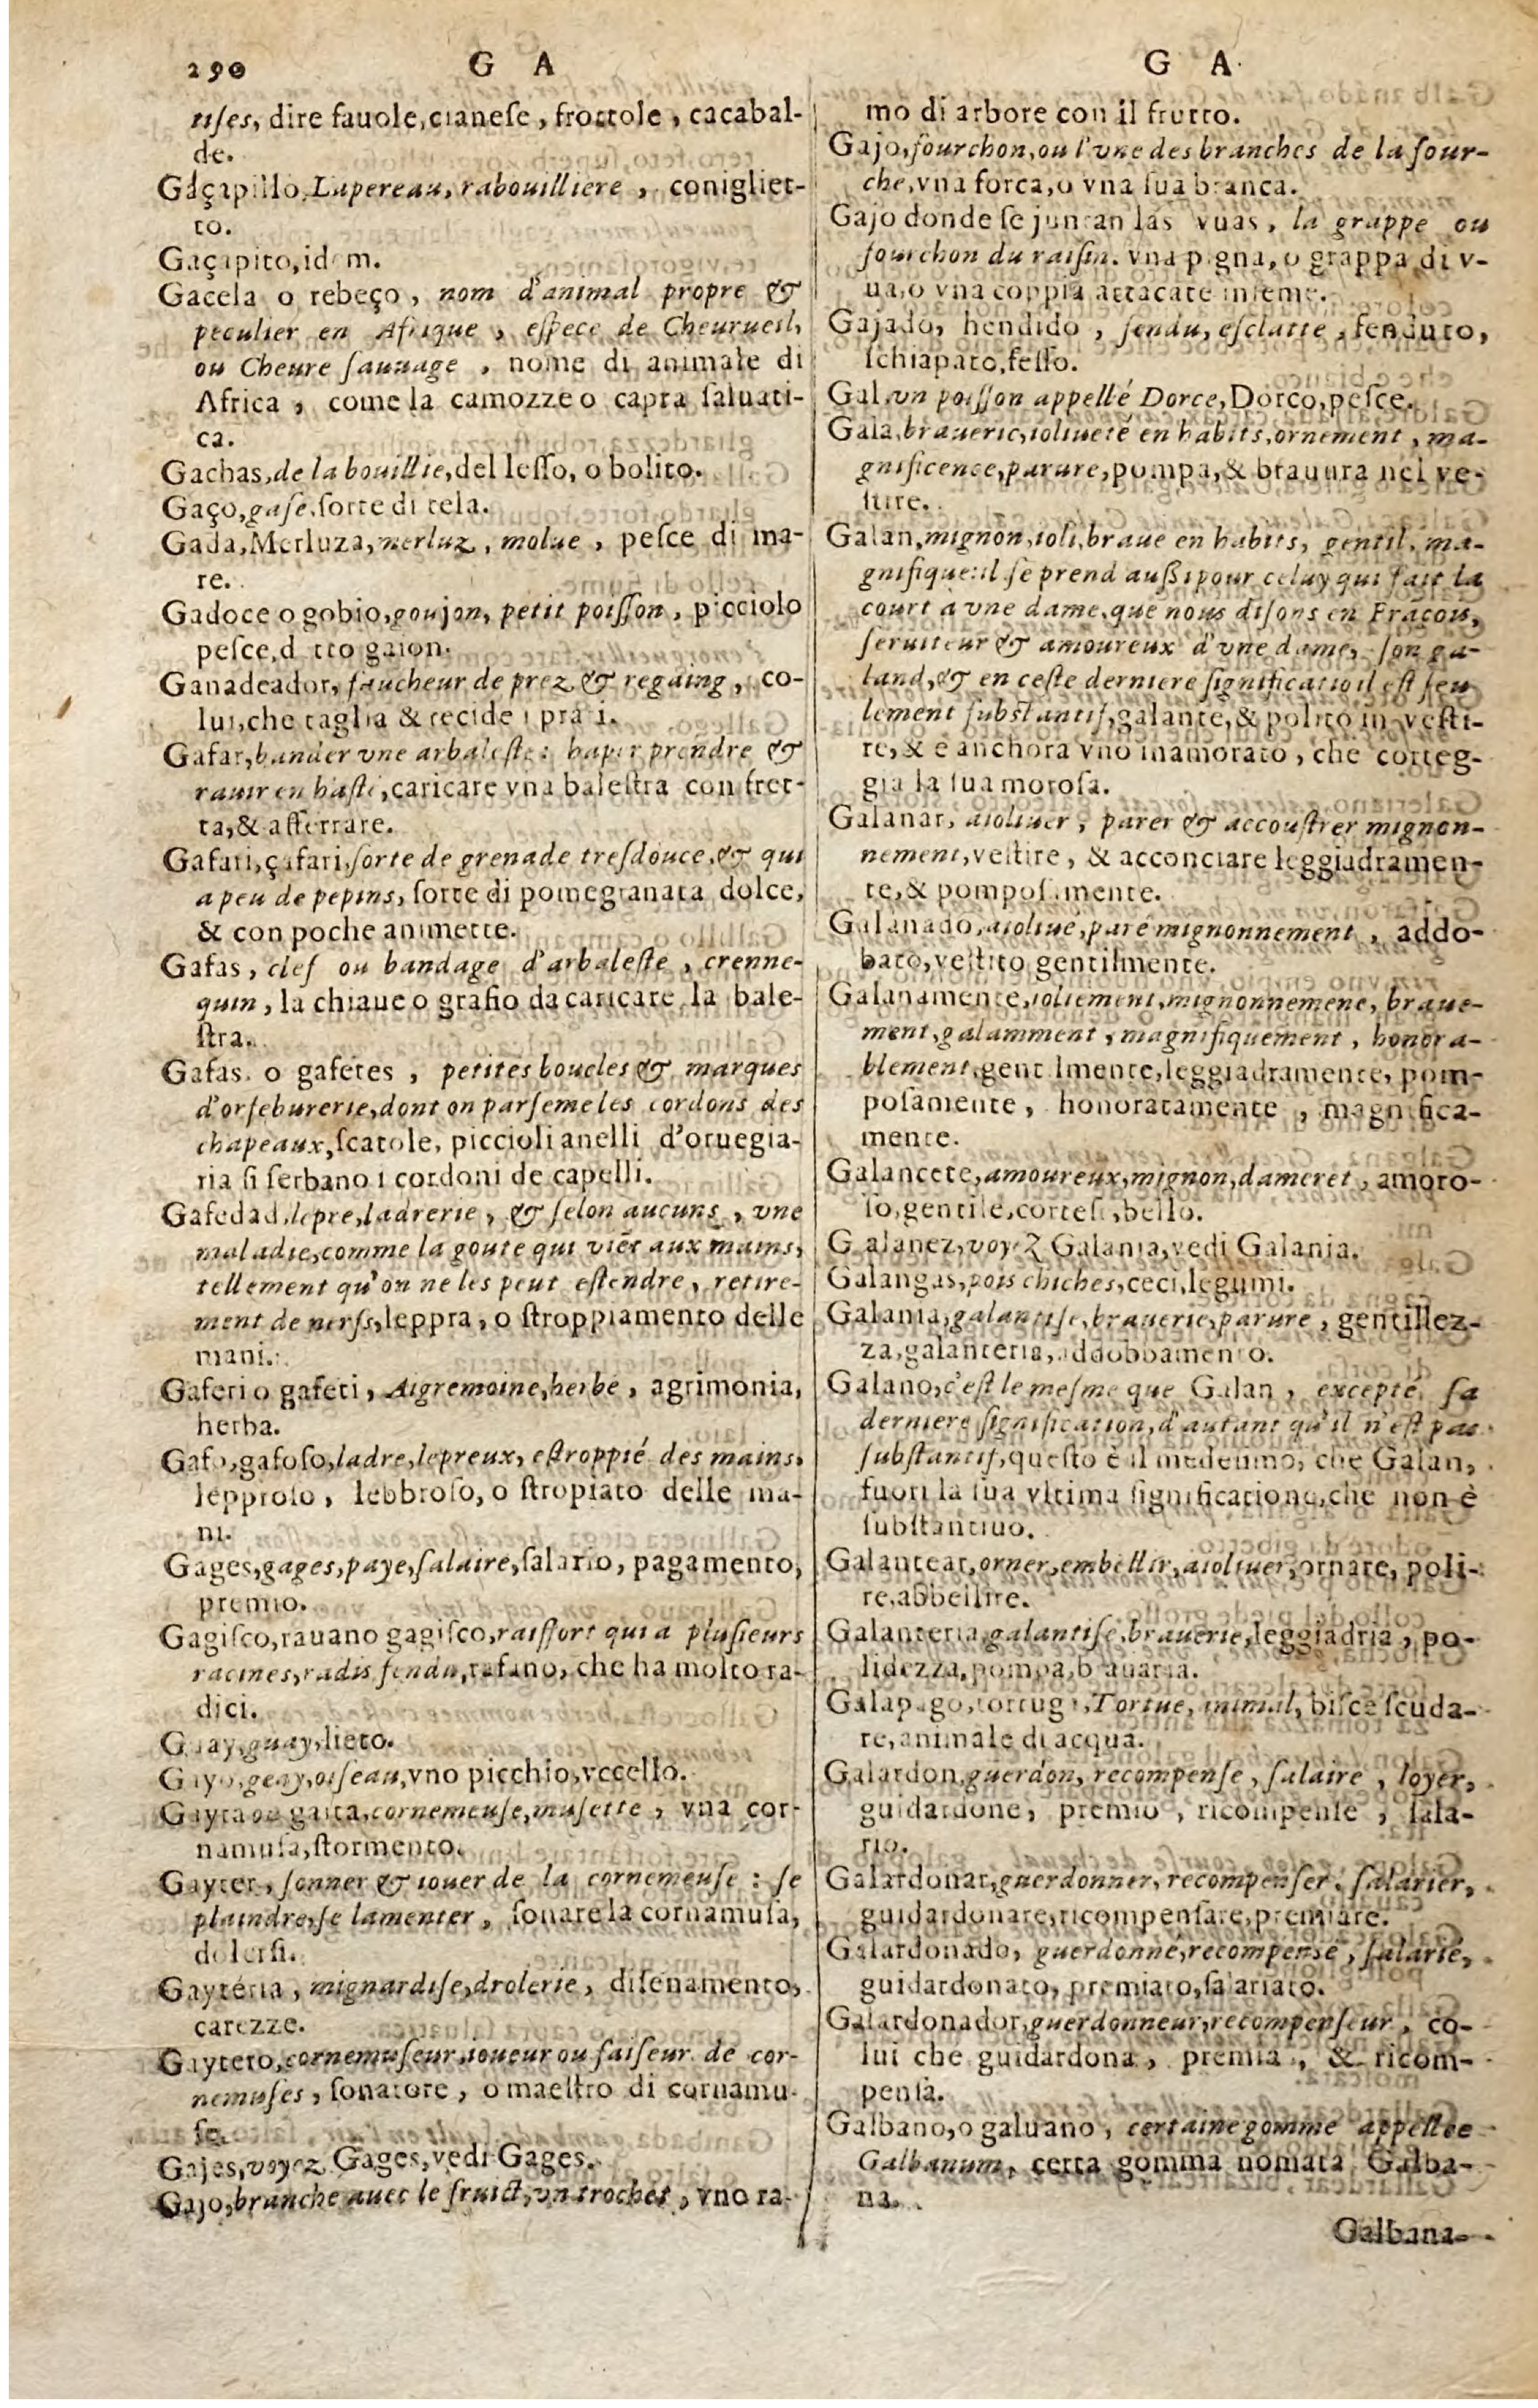 290 G A
tises, dire fauole, cianeſe, frottole, cacabal-
de.
Gaçapillo, Lapereau, rabouilliere, conigliet-
to.
Gaçapito, idem.
Gacela o rebeço, nom d'animal propre &
peculier en Afrique, eſpece de Cheurueil,
ou Cheure ſauuage, nome di animale di
Africa, come la camozze o capra ſaluati-
ca.
Gachas, de la bouillie, del leſſo, o bolito.
Gaço, gaſe, ſorte di tela.
Gada, Merluza, merluz, molue, peſce di ma-
re.
Gadoce o gobio, goujon, petit poiſſon, picciolo
peſce, detto gaion.
Ganadeador, faucheur de prez & regaing, co-
lui, che taglia & recide i prati.
Gafar, bander vne arbaleſte: haper prendre &
rauir en haſte, caricare vna baleſtra con fret-
ta, & afferrare.
Gafari, çafari, ſorte de grenade treſdouce, & qui
a peu de pepins, ſorte di pomegranata dolce,
& con poche animette.
Gafas, clef ou bandage d'arbaleſte, crenne-
quin, la chiaue o grafio da caricare la bale-
ſtra.
Gafas o gafetes, petites boucles & marques
d'orfeburerie, dont on parſeme les cordons des
chapeaux, ſcatole, piccioli anelli d'oruegia-
ria ſi ſerbano i cordoni de capelli.
Gafedad, lepre, ladrerie, & ſelon aucuns, vne
maladie, comme la goute qui viēt aux mains,
tellement qu'on ne les peut eſtendre, retire-
ment de nerfs, leppra, o ſtroppiamento delle
mani.
Gaferi o gafeti, Aigremoine, herbe, agrimonia,
herba.
Gafo, gafoſo, ladre, lepreux, eſtroppié des mains,
leproſo, lebbroſo, o ſtropiato delle ma-
ni.
Gages, gages, paye, ſalaire, ſalario, pagamento,
premio.
Gagiſco, rauano gagiſco, raiffort qui a pluſieurs
racines, radis fendu, rafano, che ha molto ra-
dici.
Guay, guay, lieto.
Gayo, geay, oiſeau, vno picchio, vccello.
Gayta ou gaita, cornemeuſe, muſette, vna cor-
namuſa, ſtormento.
Gayter, ſonner & iouer de la cornemeuſe: ſe
plaindre, ſe lamenter, ſonare la cornamuſa,
dolerſi.
Gayteria, mignardiſe, drolerie, diſenamento,
carezze.
Gaytero, cornemuſeur, ioueur ou faiſeur de cor-
nemuſes, ſonatore, o maeſtro di cornamu-
ſe.
Gajes, voyez Gages, vedi Gages.
Gajo, branche auec le fruict, vn trochet, vno ra-
G A
mo di arbore con il frutto.
Gajo, fourchon, ou l'vne des branches de la four-
che, vna forca, o vna ſua branca.
Gajo donde ſe juntan las vuas, la grappe ou
fourchon du raiſin. vna pigna, o grappa di v-
ua, o vna coppia attacate inſeme.
Gajado, hendido, fendu, eſclatté, fenduto,
ſchiapato, feſſo.
Gal, vn poiſſon appellé Dorce, Dorco, peſce.
Gala, brauerie, iolineté en habits, ornement, ma-
gnificence, parure, pompa, & brauura nel ve-
ſtire.
Galan, mignon, ioli, braue en habits, gentil, ma-
gnifique: il ſe prend auſſi pour celuy qui fait la
court à vne dame, que nous diſons en Fraçois,
ſeruiteur & amoureux d'vne dame, ſon ga-
land, & en ceſte derniere ſignificatio il eſt ſeu
lement ſubſtantif, galante, & polito in veſti-
re, & e anchora vno inamorato, che corteg-
gia la ſua moroſa.
Galanar, aioliuer, parer & accouſtrer mignon-
nement, veſtire, & acconciare leggiadramen-
te, & pompoſamente.
Galanado, aioliué, paré mignonnement, addo-
bato, veſtito gentilmente.
Galanamente, ioliement, mignonnemene, braue-
ment, galamment, magnifiquement, honora-
blement, gentilmente, leggiadramente, pom-
poſamente, honoratamente, magnifica-
mente.
Galancete, amoureux, mignon, dameret, amoro-
ſo, gentile, corteſe, bello.
Galanez, voyez Galania, vedi Galania.
Galangas, pois chiches, ceci, legumi.
Galania, galantiſe, brauerie, parure, gentillez-
za, galanteria, addobbamento.
Galano, c'eſt le meſme que Galan, excepté ſa
derniere ſignification, d'autant qu'il n'eſt pas
ſubſtantif, queſto è il medeſimo, che Galan,
fuori la ſua vltima ſignificatione, che non è
ſubſtantiuo.
Galantear, orner, embellir, aioliuer, ornare, poli-
re, abbellire.
Galanteria, galantiſe, brauerie, leggiadria, po-
lidezza, pompa, brauaria.
Galapago, tortuga, Tortue, animal, biſce ſcuda-
re, animale di acqua.
Galardon, guerdon, recompenſe, ſalaire, loyer,
guidardone, premio, ricompenſe, ſala-
rio.
Galardonar, guerdonner, recompenſer, ſalarier,
guidardonare, ricompenſare, premiare.
Galardonado, guerdonné, recompenſé, ſalarié,
guidardonato, premiato, ſalariato.
Galardonador, guerdonneur, recompenſeur, co-
lui che guidardona, premia, & ricom-
penſa.
Galbano, o galuano, certaine gomme appellee
Galbanum, certa gomma nomata Galba-
na.
Galbana-